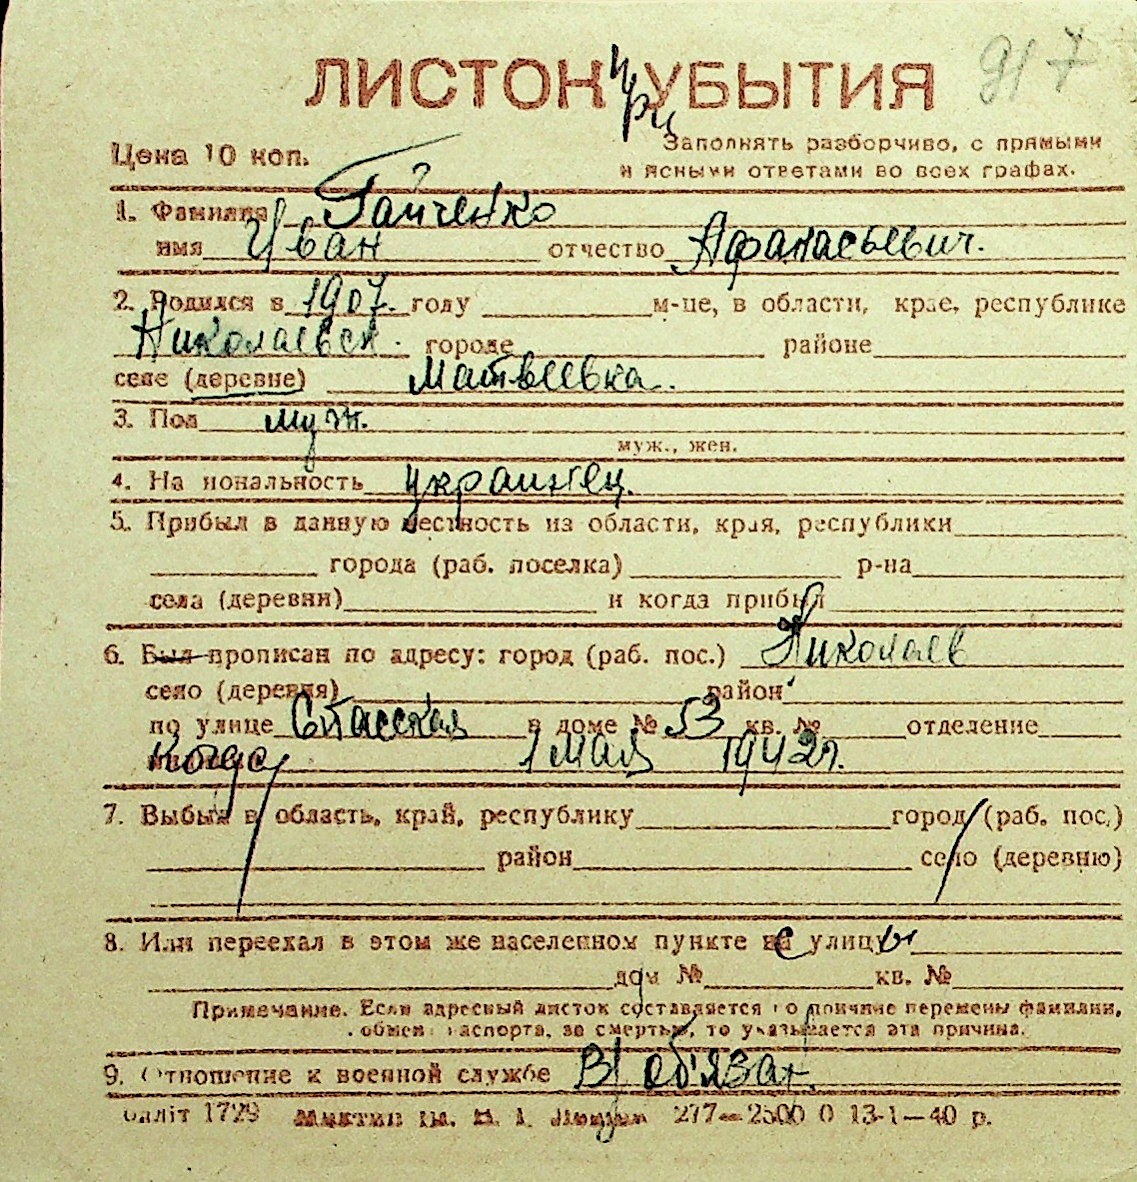 917
ЛИСТОК УБЫТИЯ
Цена 10 коп.
Заполнять разборчиво, с прямыми
и ясными ответами во всех графах.
1. Фамилия Гайченко
имя Иван отчество Афанасьевич.
2. Родился в 1907. году м-це, в области, крае, республике
Николаевск. городе районе
селе (деревне) Матвеевка.
3. Пол муж.
муж., жен.
4. Национальность украинец.
5. Прибыл в данную местность из области, края, республики
города (раб. поселка) р-на
села (деревни) и когда прибыл
6. Был прописан по адресу: город (раб. пос.) Николаев
село (деревня) район
по улице Спасская в доме № 53 кв. № отделение
когда 1 мая 1942г.
7. Выбыл в область, край, республику город (раб. пос.)
район село (деревню)
8. Или переехал в этом же населенном пункте на улицу
дом № кв. №
Примечание. Если адресный листок составляется по причине перемены фамилии,
обмена паспорта, за смертью, то указывается эта причина.
9. Отношение к военной службе В/обязан.
1729 277—2500 0 13-1—40 р.